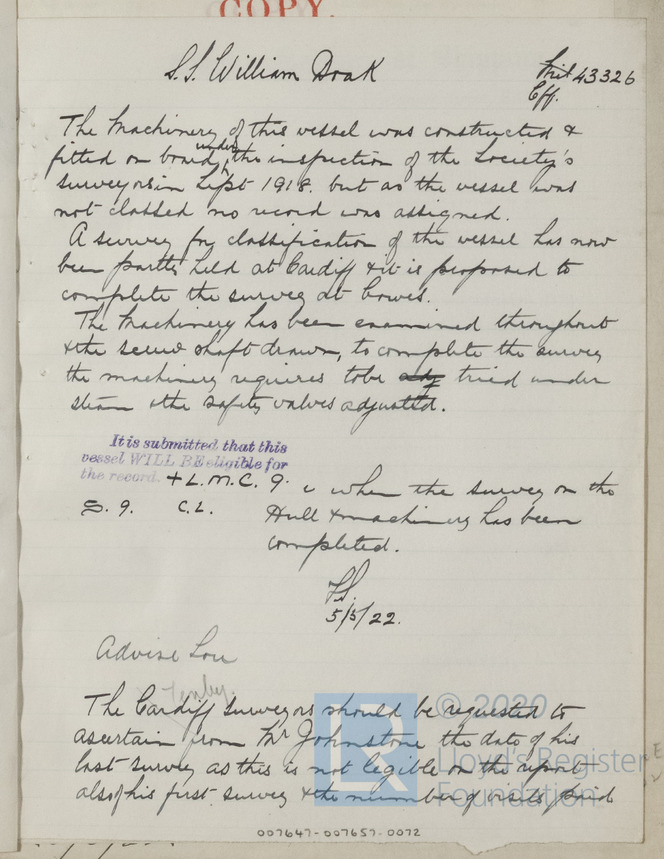 COPY.
S.S. William Doak
43326
Cff.
The Machinery of this vessel was constructed &
fitted on board under the inspection of the Society's
surveyors in Sept 1918. but as the vessel was
not classed no record was assigned.
A survey for classification of the vessel has now
been partly held at Cardiff & it is proposed to
complete the survey at Cowes.
The Machinery has been examined throughout
& the screw shaft drawn, to complete the survey
the machinery requires to be tried under
steam & the safety valves adjusted.
It is submitted that this
vessel WILL BE eligible for
the record. + L.M.C. 9. when the survey on the
S. 9. C.L. Hull & machinery has been
completed.
5/5/22.
Advise Lon
The Cardiff Surveyors should be requested to
ascertain from Mr Johnstone the date of his
last survey as this is not legible on the report
also of his first survey & the number of visits paid
© 2020
Lloyd's Register
Foundation
007647-007657-0072